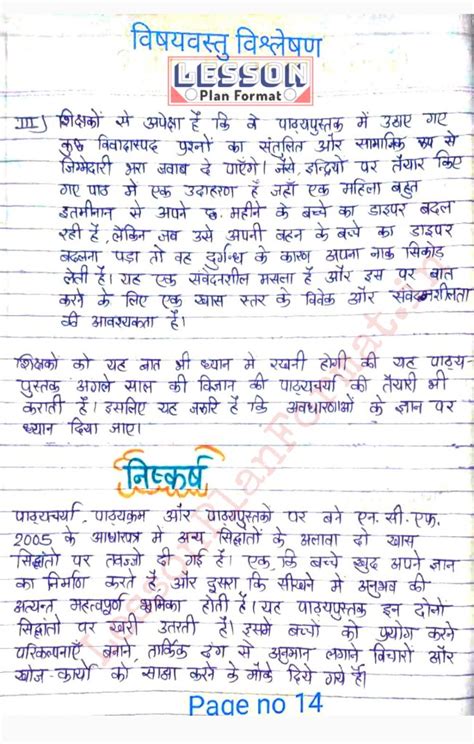 विषयवस्तु विश्लेषण
LESSON
Plan Format
III) शिक्षकों से अपेक्षा है कि वे पाठ्यपुस्तक में उठाए गए
कुछ विवादास्पद प्रश्नों का संतुलित और सामाजिक रूप से
जिम्मेदारी भरा जवाब दे पाएँगे। जैसे इन्द्रियों पर तैयार किए
गए पाठ में एक उदाहरण है जहाँ एक महिला बहुत
इतमीनान से अपने छः महीने के बच्चे का डाइपर बदल
रही है, लेकिन जब उसे अपनी बहन के बच्चे का डाइपर
बदलना पड़ा तो वह दुर्गन्ध के कारण अपना नाक सिकोड़
लेती है। यह एक संवेदनशील मसला है और इस पर बात
करने के लिए एक खास स्तर के विवेक और संवेदनशीलता
की आवश्यकता है।
शिक्षकों को यह बात भी ध्यान मे रखनी होगी की यह पाठ्य-
पुस्तक अगले साल की विज्ञान की पाठ्यचर्या की तैयारी भी
कराती है। इसलिए यह जरुरि है कि अवधारणाओं के ज्ञान पर
ध्यान दिया जाए।
निष्कर्ष
पाठ्यचर्या, पाठ्यक्रम और पाठ्यपुस्तको पर बने एन. सी. एफ.
2005 के आधारपत्र में अन्य सिद्धांतों के अलावा दो खास
सिद्धांतो पर तवज्जो दी गई है। एक, कि बच्चे खुद अपने ज्ञान
का निर्माण करते है, और दुसरा कि सीखने में अनुभव की
अत्यन्त महत्वपूर्ण भूमिका होती है। यह पाठ्यपुस्तक इन दोनों
सिद्धांतो पर खरी उतरती है। इसमे बच्चों को प्रयोग करने
परिकल्पनाएँ बनाने, तार्किक ढंग से अनुमान लगाने विचारों और
खोज-कार्यो को साझा करने के मौके दिये गये है।
Page no 14
LessonPlanFormat.in